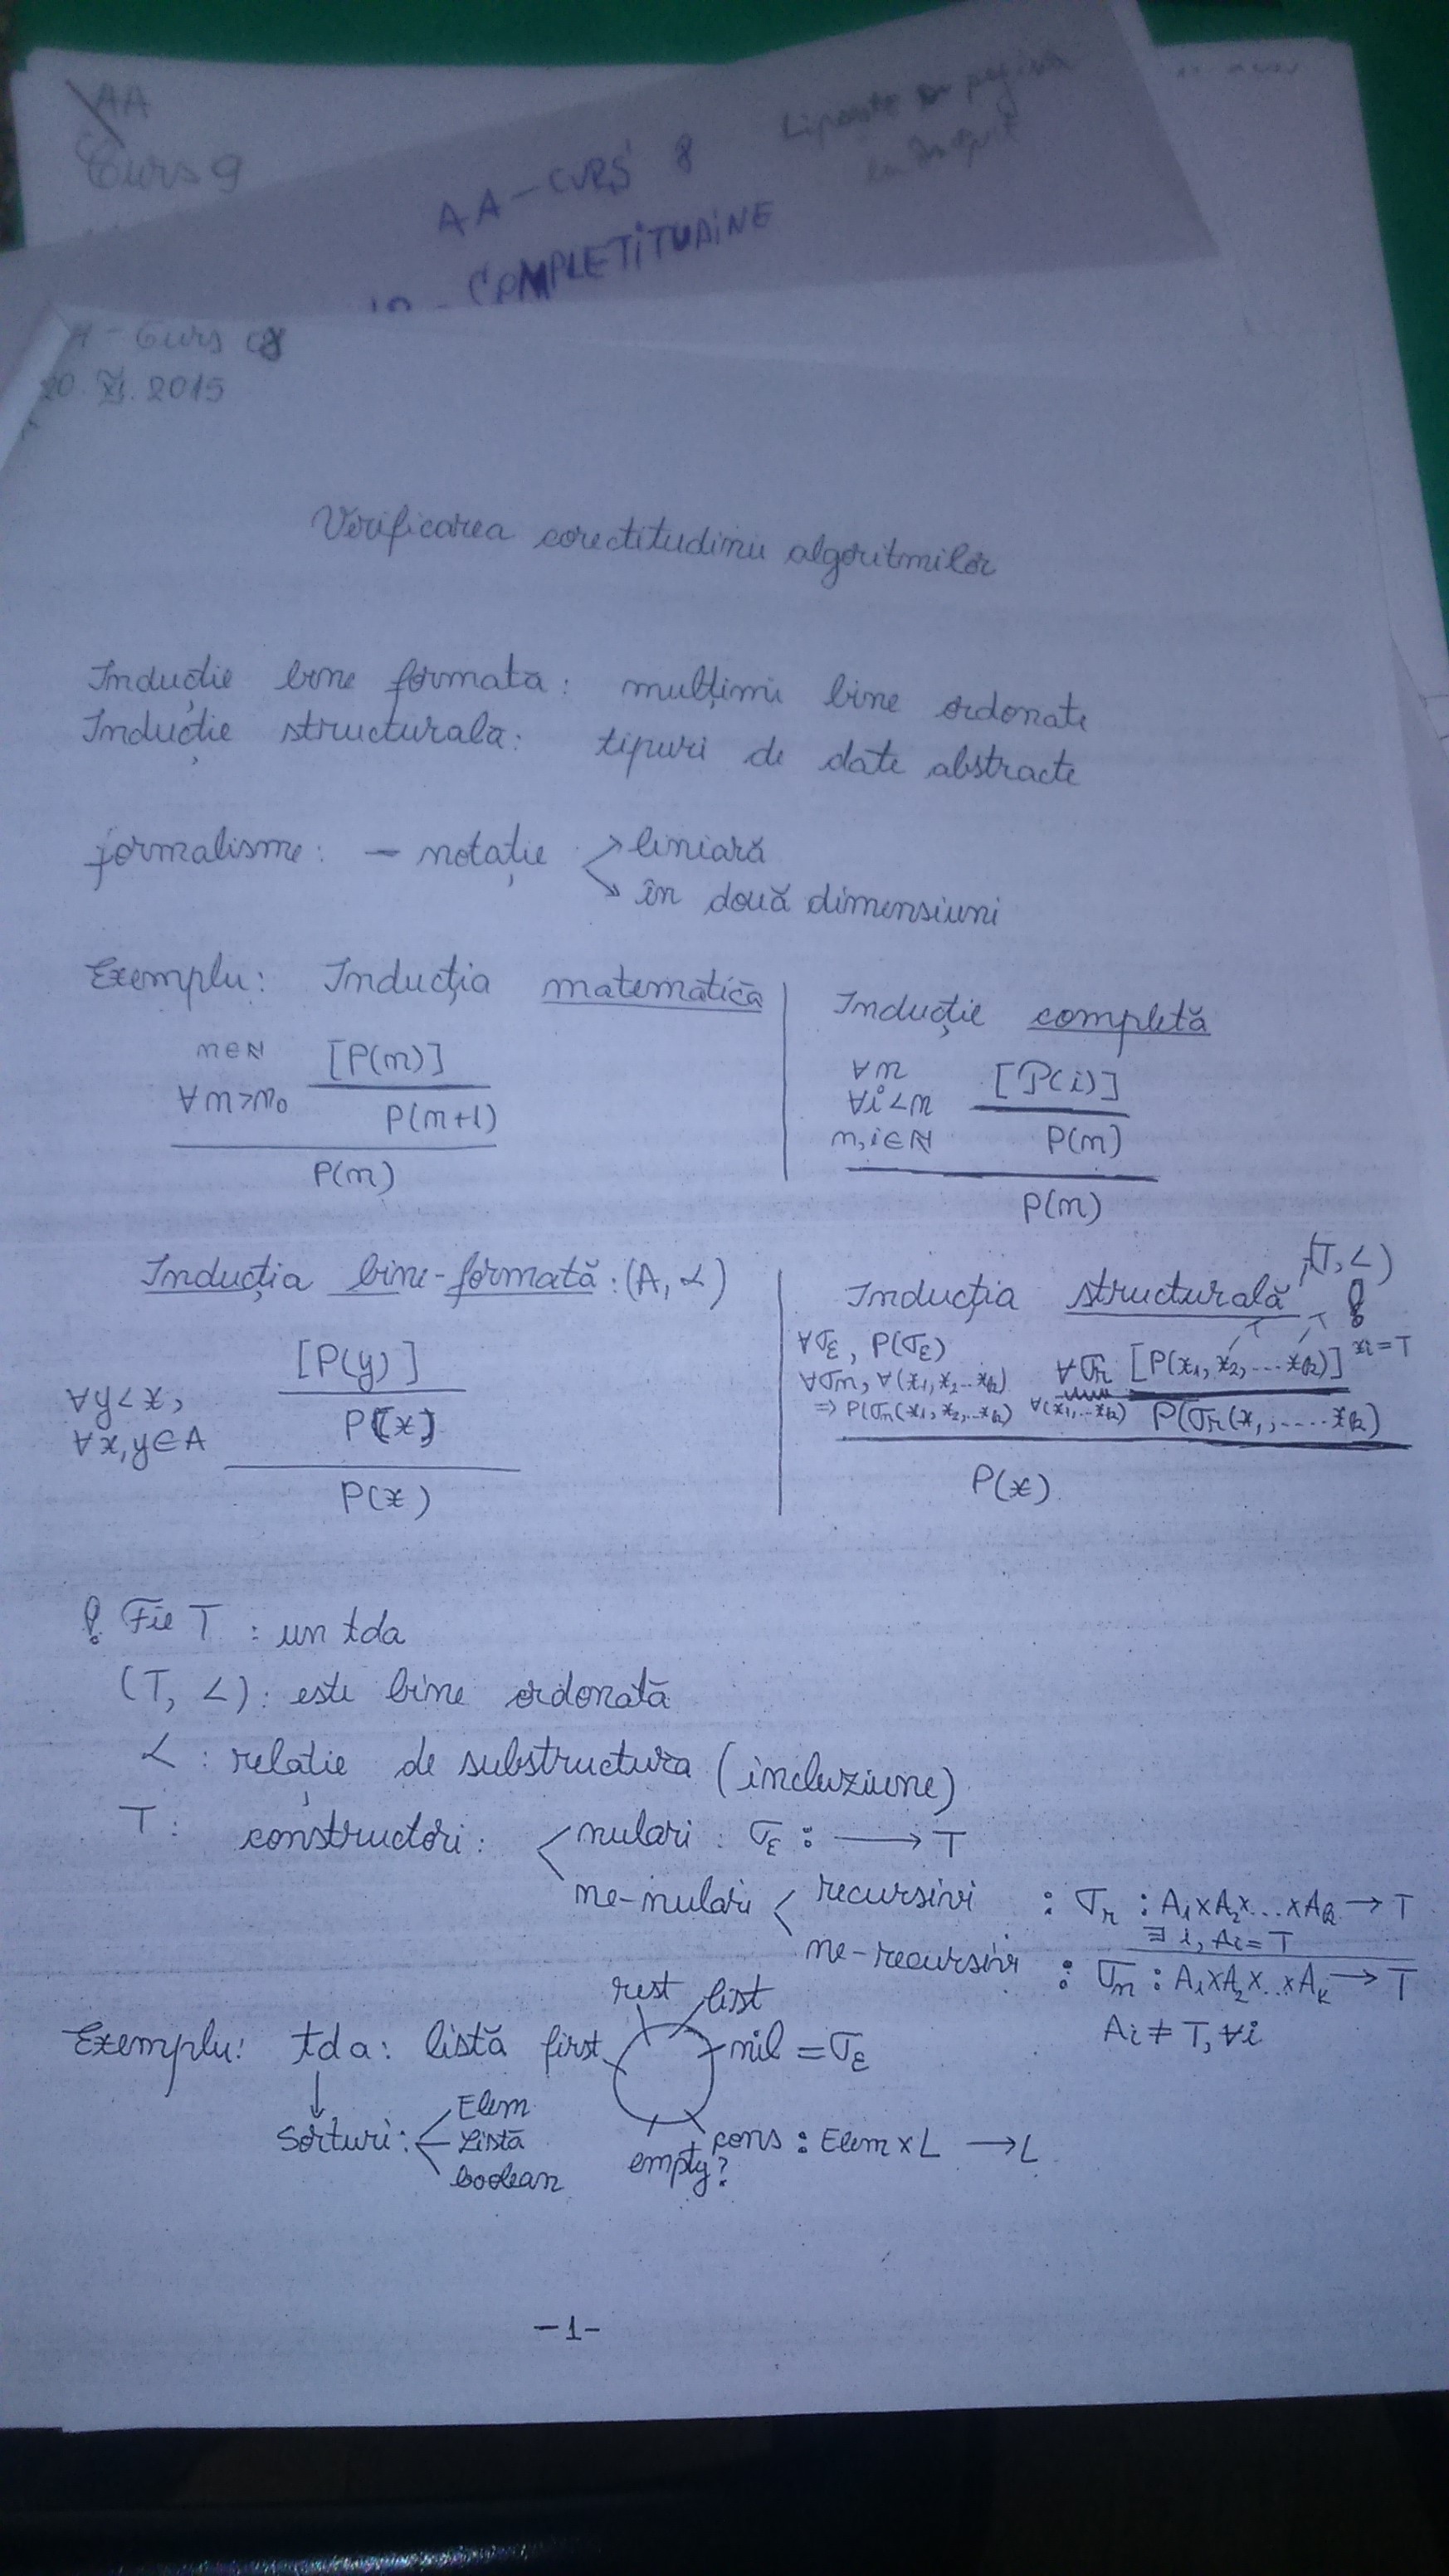 AA
Curs 9
AA - CURS 8
COMPLETITUDINE
Lipsește
- Curs 08
20. XI. 2015
Verificarea corectitudinii algoritmilor
Inducție bine formata: mulțimi bine ordonate
Inducție structurala: tipuri de date abstracte
formalisme: - notație
liniară
în două dimensiuni
Exemplu: Inducția matematică
n∈ℕ
[P(n)]
∀n>n₀
P(n+1)
P(n)
Inducție completă
∀n
[P(i)]
∀i<n
n,i∈ℕ
P(n)
P(n)
Inducția bine-formată: (A, <)
[P(y)]
∀y<x,
P(x)
∀x,y∈A
P(x)
Inducția structurală, (T, <) !
∀σε, P(σε)
∀σn, ∀(x1, x2...xk)
=> P(σn(x1, x2,...xk)
∀σr [P(x1, x2,...xk)] xi=T
∀(x1,...xk) P(σr(x1,.....xk)
P(x)
! Fie T : un tda
(T, <): este bine ordonată
< : relație de substructura (incluziune)
T: constructori:
nulari : σε : → T
ne-nulari
recursivi : σr : A1xA2x...xAk → T
∃ i, Ai = T
ne-recursivi : σn : A1xA2x...xAk → T
Ai ≠ T, ∀i
Exemplu: tda: listă
rest
list
first
nil = σε
empty?
cons : Elem x L → L
Sorturi:
Elem
Listă
boolean
-1-